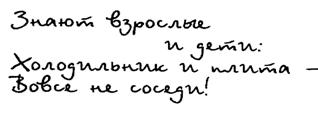 Знают взрослые
и дети:
Холодильник и плита –
Вовсе не соседи!